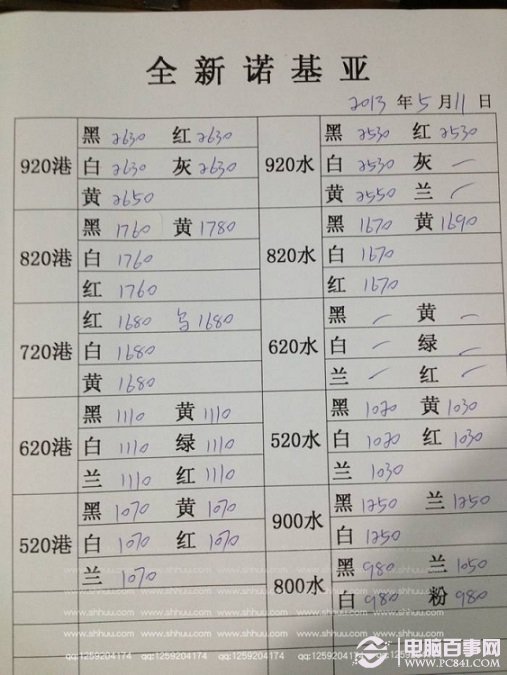 全新诺基亚
2013年5月11日
920港
黑 2630 红 2630
白 2630 灰 2630
黄 2650
820港
黑 1760 黄 1780
白 1760
红 1760
720港
红 1680 乌 1680
白 1680
黄 1680
620港
黑 1110 黄 1110
白 1110 绿 1110
兰 1110 红 1110
520港
黑 1070 黄 1070
白 1070 红 1070
兰 1070
920水
黑 2530 红 2530
白 2530 灰 –
黄 2550 兰 –
820水
黑 1670 黄 1690
白 1670
红 1670
620水
黑 – 黄 –
白 – 绿 –
兰 – 红 –
520水
黑 1020 黄 1030
白 1020 红 1030
兰 1030
900水
黑 1250 兰 1250
白 1250
800水
黑 980 兰 1050
白 980 粉 980
www.shhuu.com www.shhuu.com www.shhuu.com www.shhuu.com
www.shhuu.com www.shhuu.com www.shhuu.com www.shhuu.com
www.shhuu.com www.shhuu.com www.shhuu.com www.shhuu.com
qq:1259204174 qq:1259204174 qq:1259204174 qq:1259204174
电脑百事网
WWW.PC841.COM